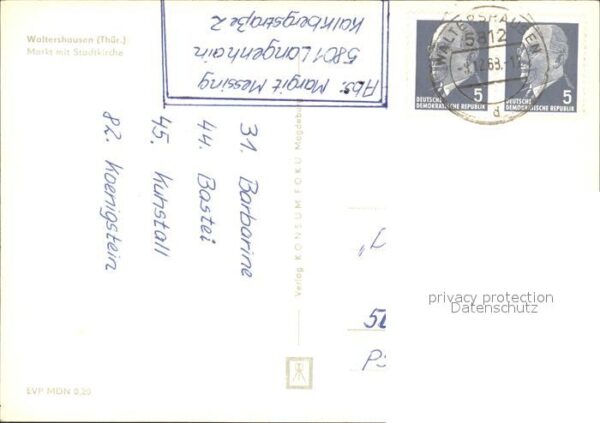 Waltershausen (Thür.)
Markt mit Stadtkirche
Abs. Margit Messing
5801 Langenhain
Kalkbergstraße 2
WALTERSHAUSEN
5812
d
DEUTSCHE
DEMOKRATISCHE REPUBLIK
5
DEUTSCHE
DEMOKRATISCHE REPUBLIK
5
31. Barbarine
44. Bastei
45. Kuhstall
82. Koenigstein
Verlag KONSUM FOKU Magdeburg
privacy protection
Datenschutz
EVP MDN 0,20